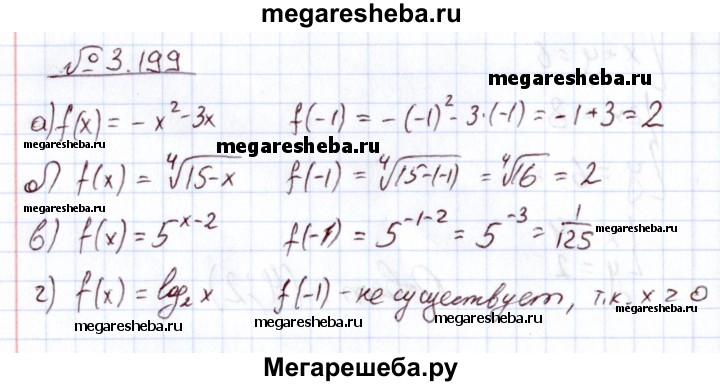 megaresheba.ru
№ 3.199
megaresheba.ru
а) f(x) = - x² - 3x f(-1) = - (-1)² - 3·(-1) = -1 + 3 = 2
megaresheba.ru
megaresheba.ru
б) f(x) = ⁴√(15-x) f(-1) = ⁴√(15-(-1)) = ⁴√16 = 2
megaresheba.ru
в) f(x) = 5^(x-2) f(-1) = 5^(-1-2) = 5^(-3) = 1/125
megaresheba.ru
г) f(x) = log₂ x f(-1) - не существует, т.к. x > 0
megaresheba.ru megaresheba.ru megaresheba.ru
Мегарешеба.ру